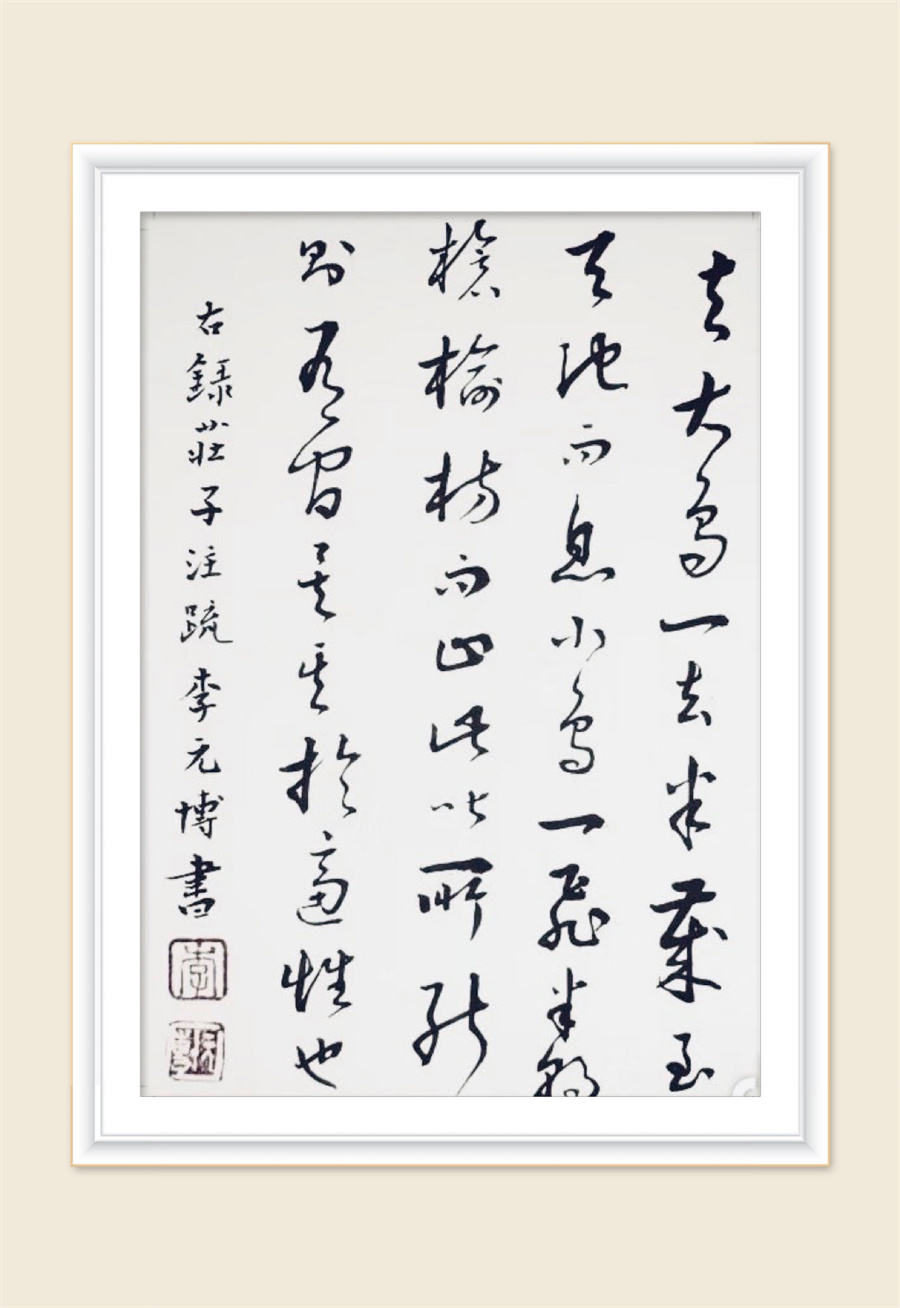 夫大鳥一去半歲至
天池而息小鳥一飛半朝
槍榆枋而止此比所能
則有間矣其於適性也
右錄莊子注疏李元博書
李